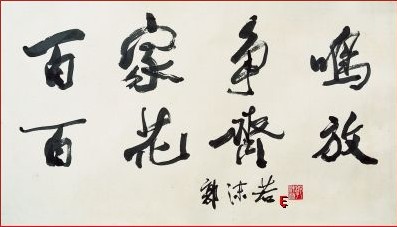 百家争鳴
百花齊放
郭沫若
E